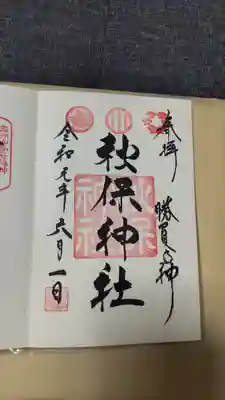 奉拝 勝負の神
秋保神社
令和元年 六月一日
秋保
神社